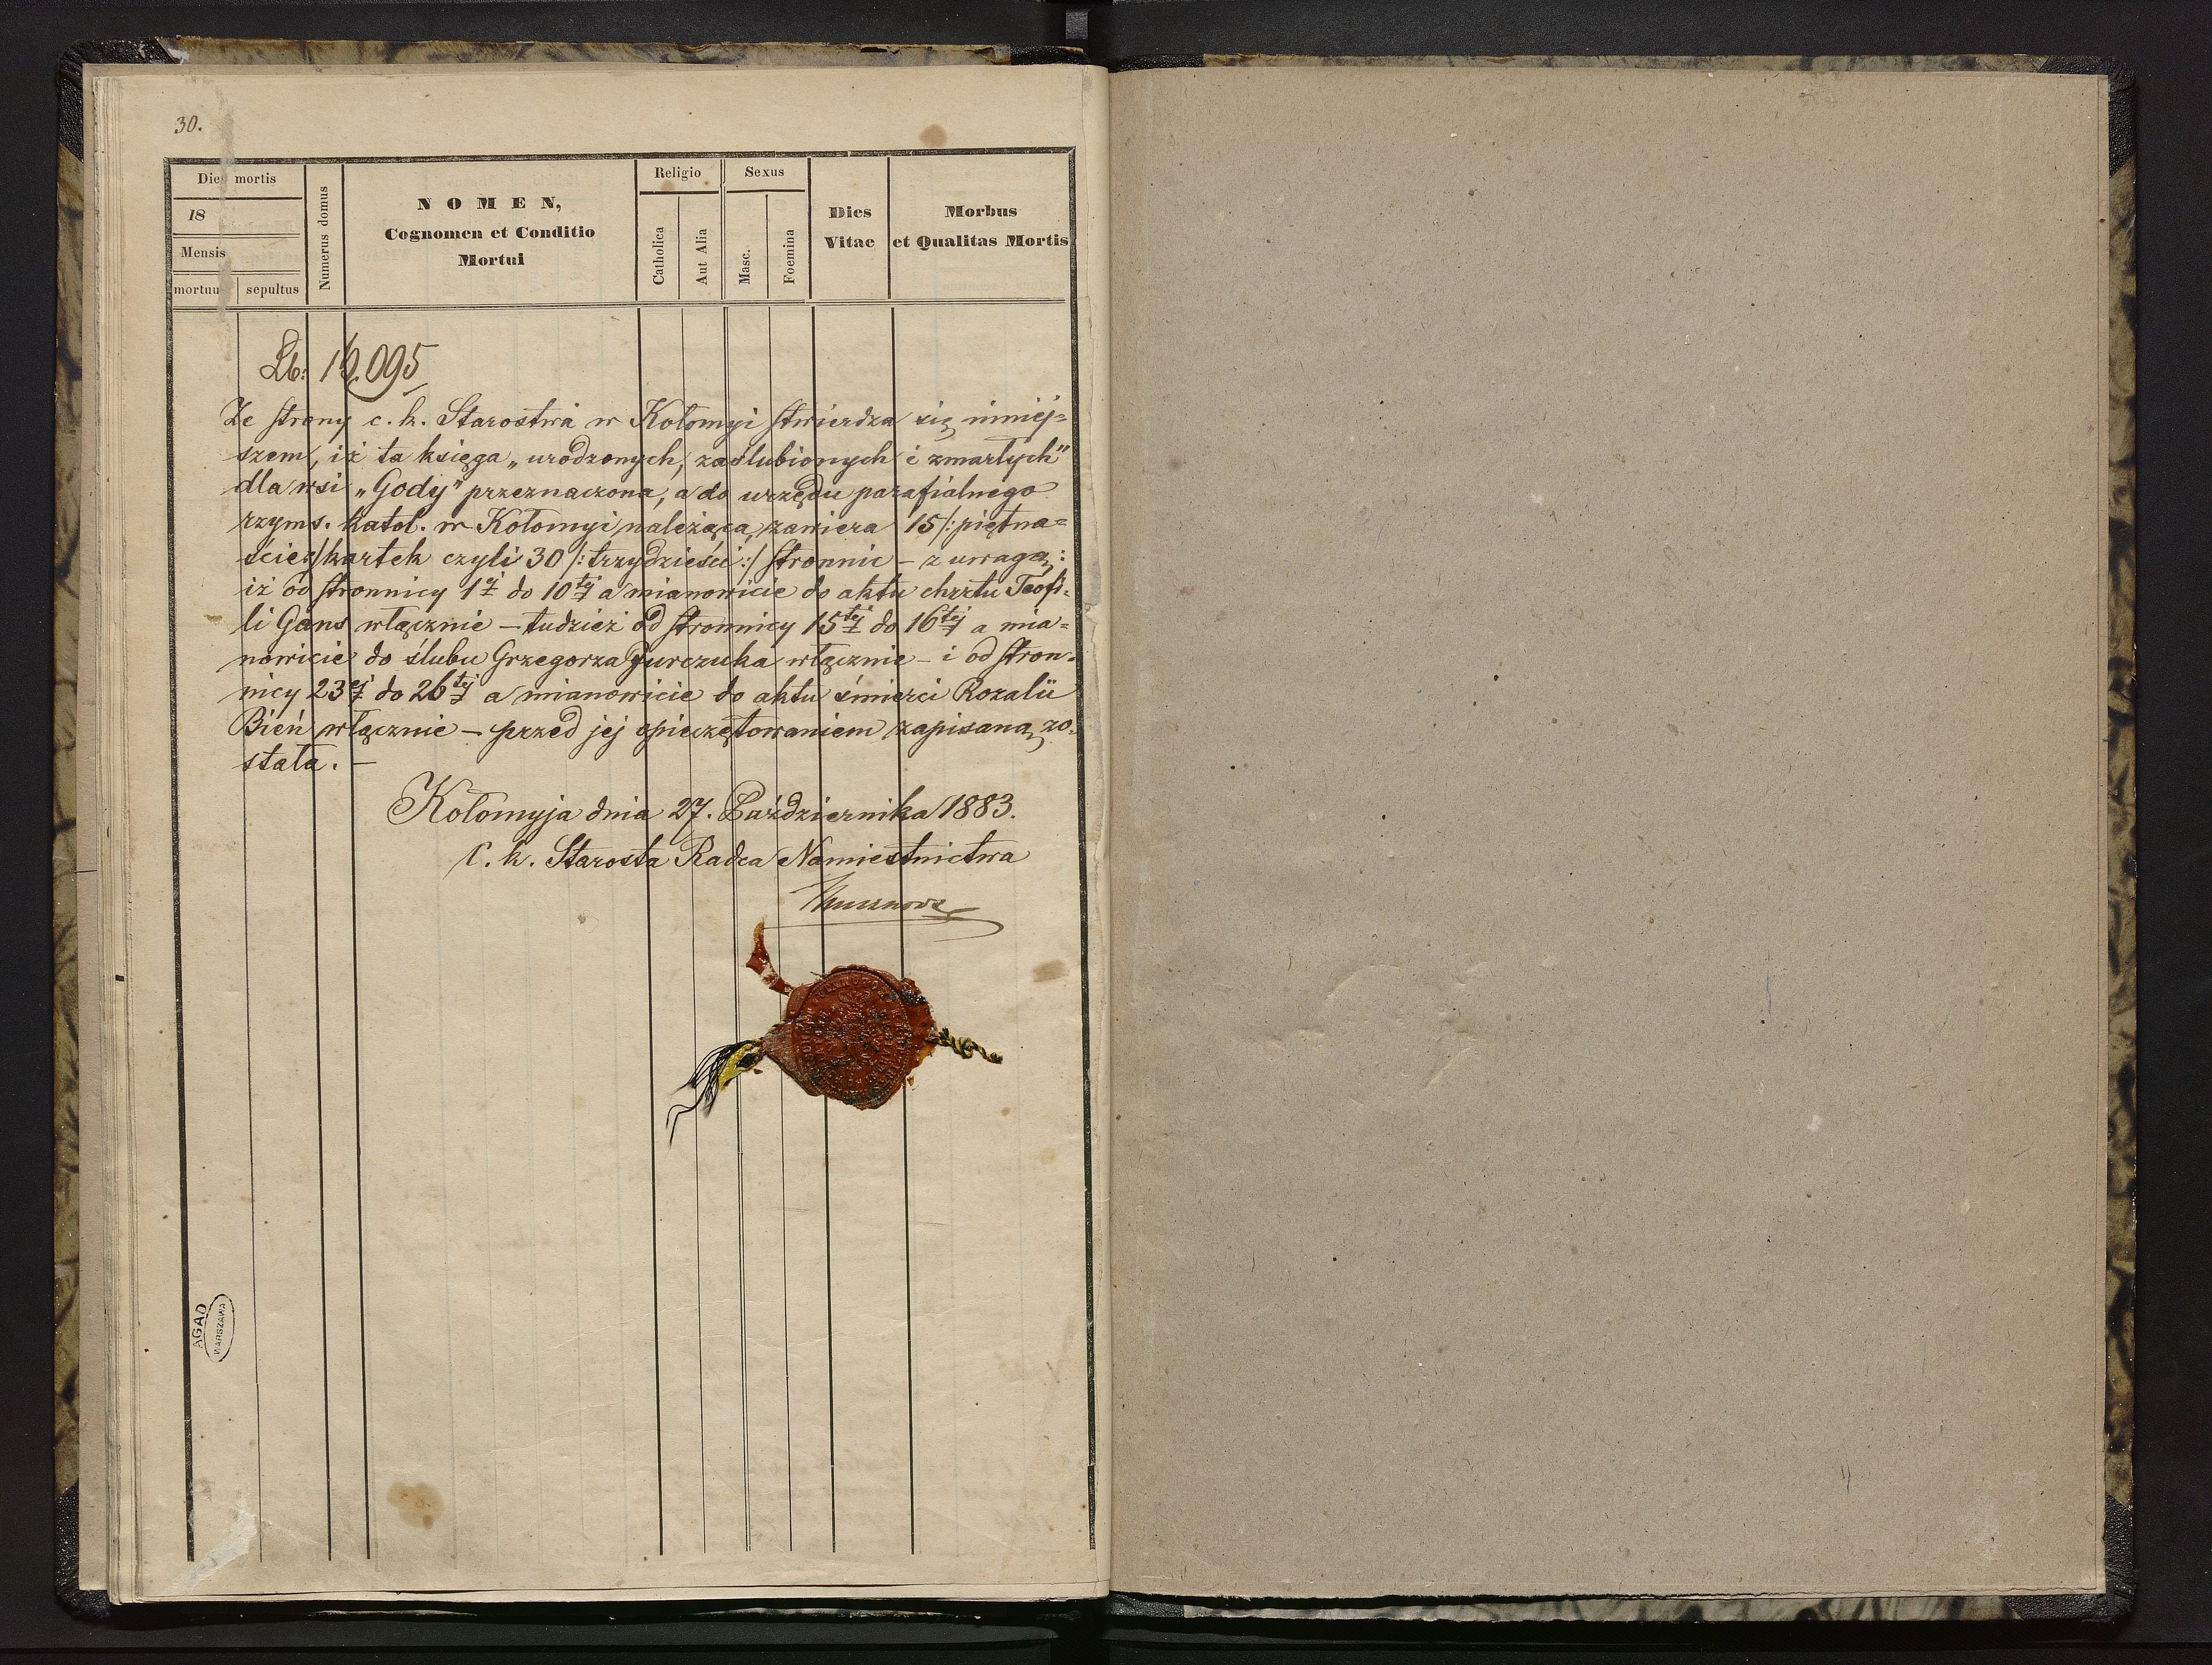 30.
Dies mortis
18
Mensis
mortuus sepultus
Numerus domus
NOMEN,
Cognomen et Conditio
Mortui
Religio
Catholica
Aut Alia
Sexus
Masc.
Foemina
Dies
Vitae
Morbus
et Qualitas Mortis
Lb: 16.095
Ze strony c. k. Starostwa w Kołomyi stwierdza się niniej=
szem, iż ta księga „urodzonych, zaślubionych i zmarłych"
dla wsi „Gody" przeznaczona, a do urzędu parafialnego
rzyms. katol. w Kołomyi należąca, zawiera 15 /: piętna=
ście :/ kartek czyli 30 /: trzydzieści :/ stronnic – z uwagą:
iż od stronnicy 1ej do 10tej a mianowicie do aktu chrztu Teofi-
li Gans włącznie – tudzież od stronnicy 15tej do 16tej a mia=
nowicie do ślubu Grzegorza Jurczuka włącznie – i od stron-
nicy 23ej do 26tej a mianowicie do aktu śmierci Rozalii
Bień włącznie – przed jej opieczętowaniem zapisaną zo-
stała. –
Kołomyja dnia 27. Października 1883.
C. k. Starosta Radca Namiestnictwa
AGAD
WARSZAWA